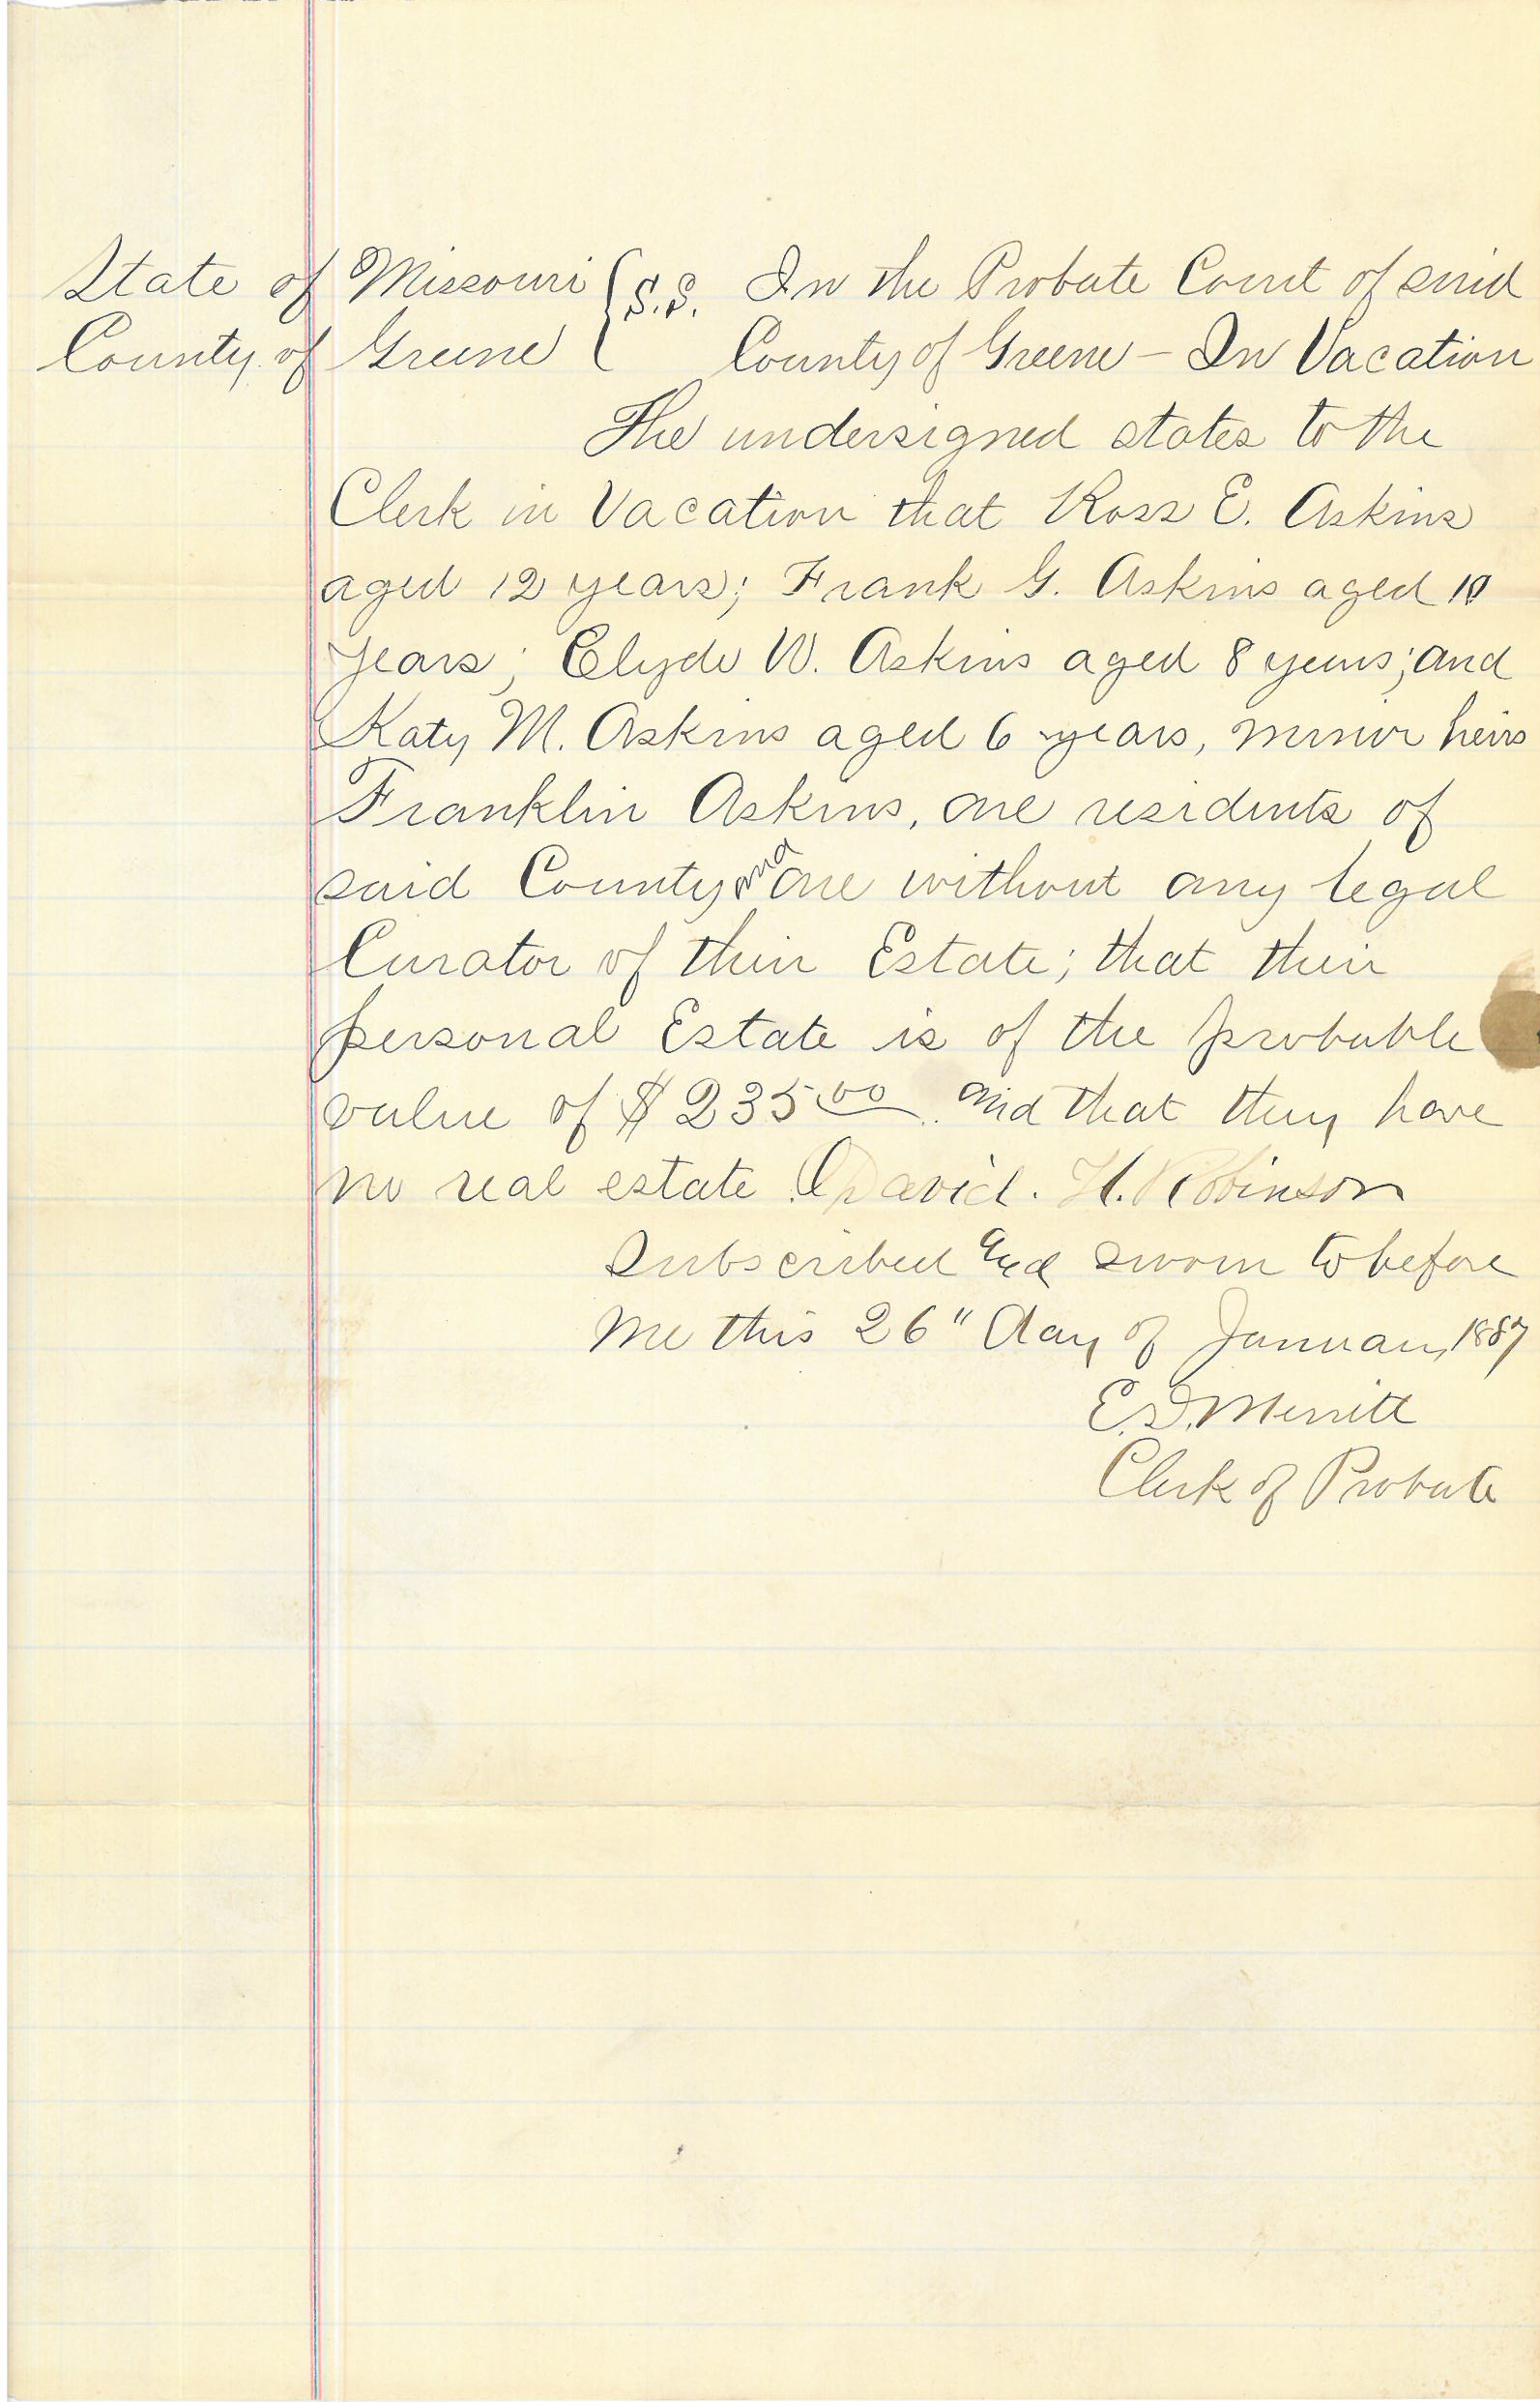 State of Missouri { S.S. In the Probate Court of said
County of Greene County of Greene – In Vacation
The undersigned states to the
Clerk in Vacation that Ross E. Askins
aged 12 years; Frank G. Askins aged 10
years; Clyde W. Askins aged 8 years; and
Katy M. Askins aged 6 years, minor heirs
Franklin Askins, are residents of
said County and are without any legal
Curator of their Estate; that their
personal Estate is of the probable
value of $235 00 and that they have
no real estate. David. H. Robinson
Subscribed and sworn to before
me this 26" day of January 1887
E. D. Merritt
Clerk of Probate